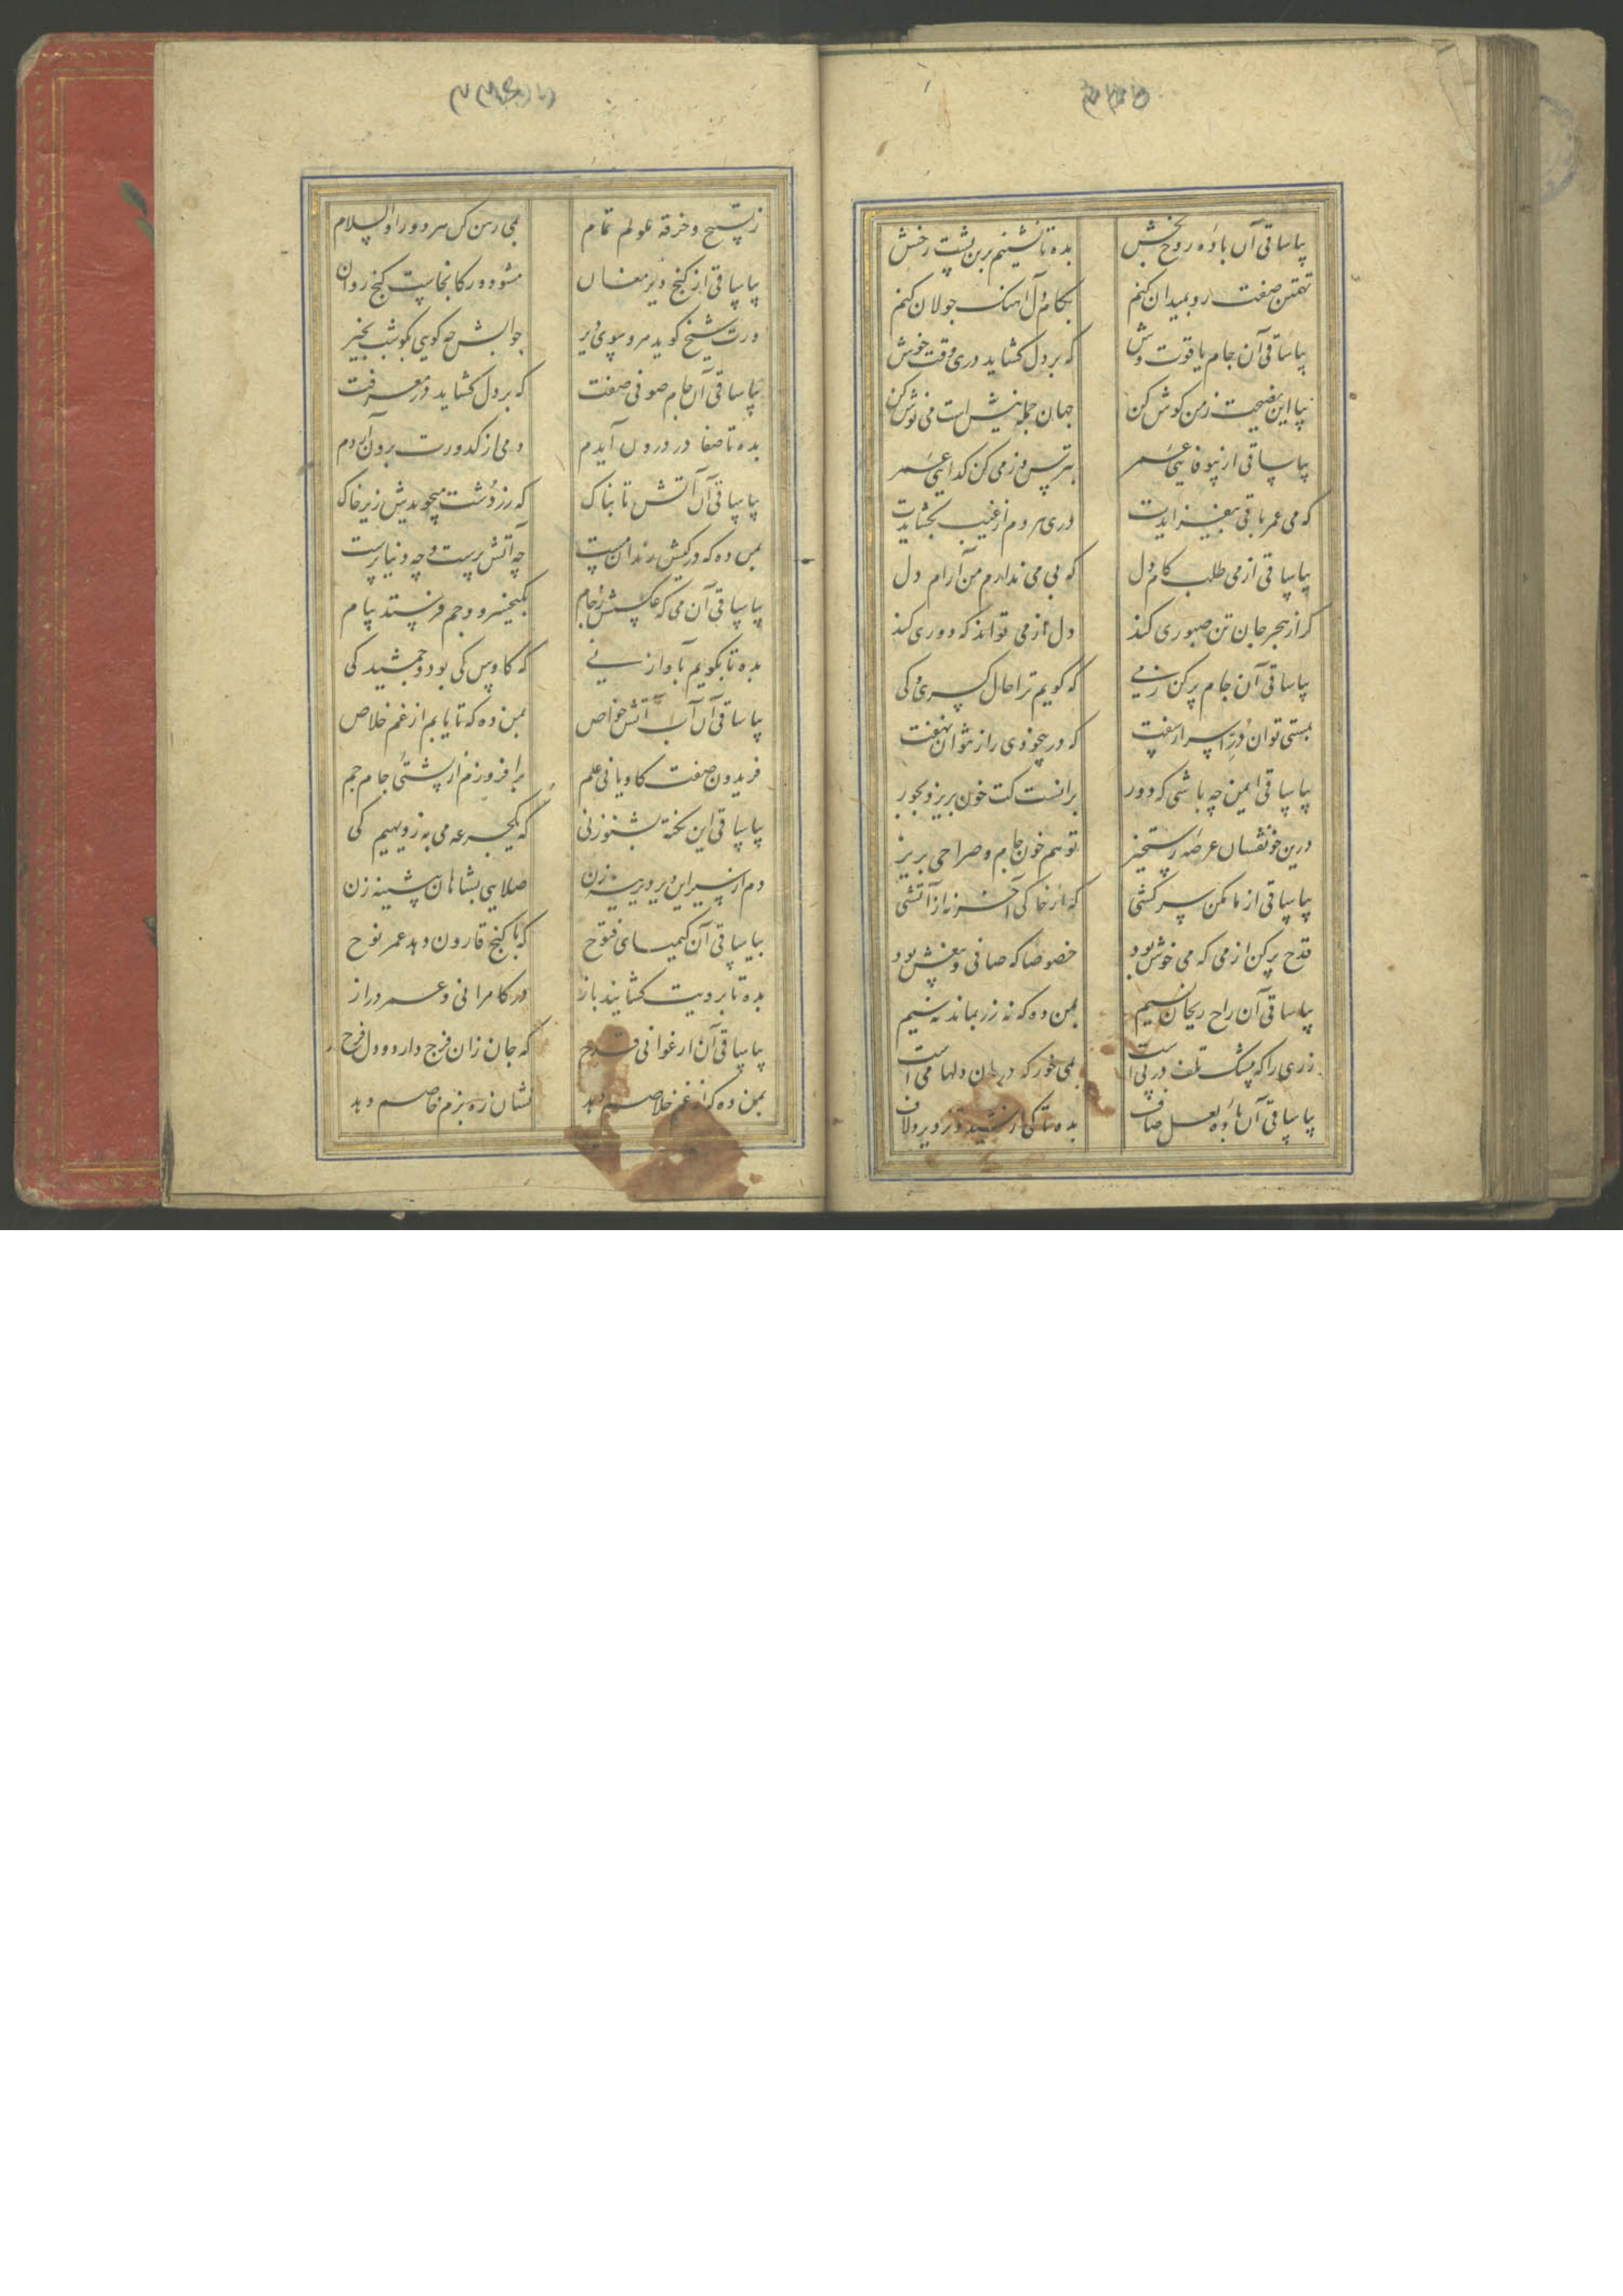 بیا ساقی آن باده روح بخش بده تا نشینم برین پشت رخش
تهمتن صفت رو بمیدان کنم بکام دل آهنگ جولان کنم
بیا ساقی آن جام یاقوت وش که بر دل کشاید دری وقت خوش
بیا این نصیحت ز من کوش کن جهان جمله نیش است می نوش کن
بیا ساقی از بیوفایی عمر بترس و ز می کن کدایی عمر
که می عمر باقی بیفزایدت دری هر دم از غیب بکشایدت
بیا ساقی از می طلب کام دل که بی می ندارم من آرام دل
کر از هجر جان تن صبوری کند دل از می تواند که دوری کند
بیا ساقی آن جام پر کن ز می که کویم ترا حال کسری و کی
بمستی توان در اسرار سفت که در بیخودی راز نتوان نهفت
بیا ساقی ایمن چه باشی که دور برانست کت خون بریزد بجور
درین خونفسان عرصه رستخیز تو هم خون جام و صراحی بریز
بیا ساقی از ما مکن سرکشی که از خاکی آخر نه از آتشی
قدح پر کن از می که می خوش بود خصوصا که صافی و بیغش بود
بیا ساقی آن راح ریحان نسیم بمن ده که نه زر بماند نه سیم
زری را که بیشک تلف در پی است بمی خور که درمان دلها می است
بیا ساقی آن باده لعل صاف بده تا کی از شید و تزویر و لاف
ز تسبیح و خرقه ملولم تمام بمی رهن کن هر دو را والسلام
بیا ساقی از کنج دیر مغان مشو دور کانجاست کنج روان
ورت شیخ کوید مرو سوی دیر جوابش چه کویی بکو شب بخیر
بیا ساقی آن جام صوفی صفت که بر دل کشاید در معرفت
بده تا صفا در درون آیدم دمی از کدورت برون آردم
بیا ساقی آن آتش تابناک که زردشت میجویدش زیر خاک
بمن ده که در کیش رندان مست چه آتش پرست و چه دنیا پرست
بیا ساقی آن می که عکسش ز جام بکیخسرو و جم فرستد پیام
بده تا بکویم بآواز نی که کاوس کی بود و جمشید کی
بیا ساقی آن آب آتش خواص بمن ده که تا یابم از غم خلاص
فریدون صفت کاویانی علم برافروزم از پشتی جام جم
بیا ساقی این نکته بشنو ز نی که یکجرعه می به ز دیهیم کی
دم از سیر این دیر دیرینه زن صلایی بشاهان پیشینه زن
بیا ساقی آن کیمیای فتوح که با کنج قارون دهد عمر نوح
بده تا برویت کشایند باز در کامرانی و عمر دراز
بیا ساقی آن ارغوانی قدح که جان زان فرح دارد و دل فرح
بمن ده کز غم خلاصم دهد نشان ره بزم خاصم دهد